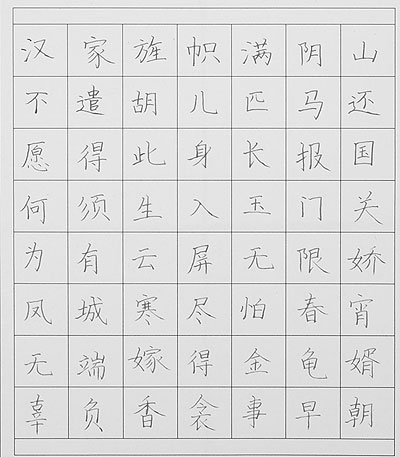 汉家旌帜满阴山
不遣胡儿匹马还
愿得此身长报国
何须生入玉门关
为有云屏无限娇
凤城寒尽怕春宵
无端嫁得金龟婿
辜负香衾事早朝